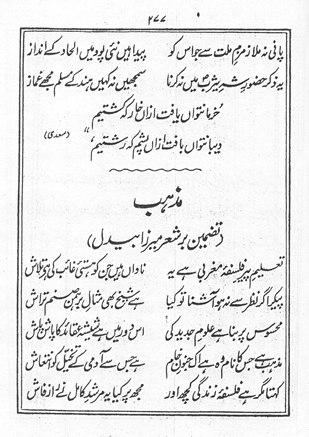 ۲۷۷
پانی نہ ملا زمزمِ ملت سے جو اس کو پیدا ہیں نئی پود میں الحاد کے انداز
یہ ذکر حضورِ شہِ یثرب میں نہ کرنا سمجھیں نہ کہیں ہند کے مسلم مجھے غماز
خرما نتواں یافت ازاں خار کہ کشتیم
دیبا نتواں بافت ازاں پشم کہ رشتیم (سعدی)
مذہب
(تضمین بر شعر میرزا بیدل)
تعلیمِ پیرِ فلسفۂ مغربی ہے یہ ناداں ہیں جن کو ہستیِ غائب کی ہے تلاش
پیکر اگر نظر سے نہ ہو آشنا تو کیا ہے شیخ بھی مثالِ برہمن صنم تراش
محسوس پر بنا ہے علومِ جدید کی اس دور میں ہے شیشہ عقائد کا پاش پاش
مذہب ہے جس کا نام وہ ہے اک جنونِ خام ہے جس سے آدمی کے تخیل کو انتعاش
کہتا مگر ہے فلسفۂ زندگی کچھ اور مجھ پر کیا یہ مرشدِ کامل نے راز فاش